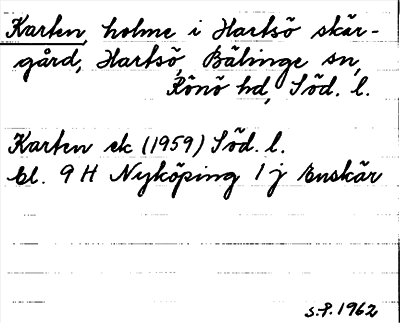 Karten, holme i Hartsö skär-
gård, Hartsö, Bälinge sn,
Rönö hd, Söd. l.
Karten ek (1959) Söd. l.
bl. 9 H Nyköping 1 j Enskär
S.P. 1962